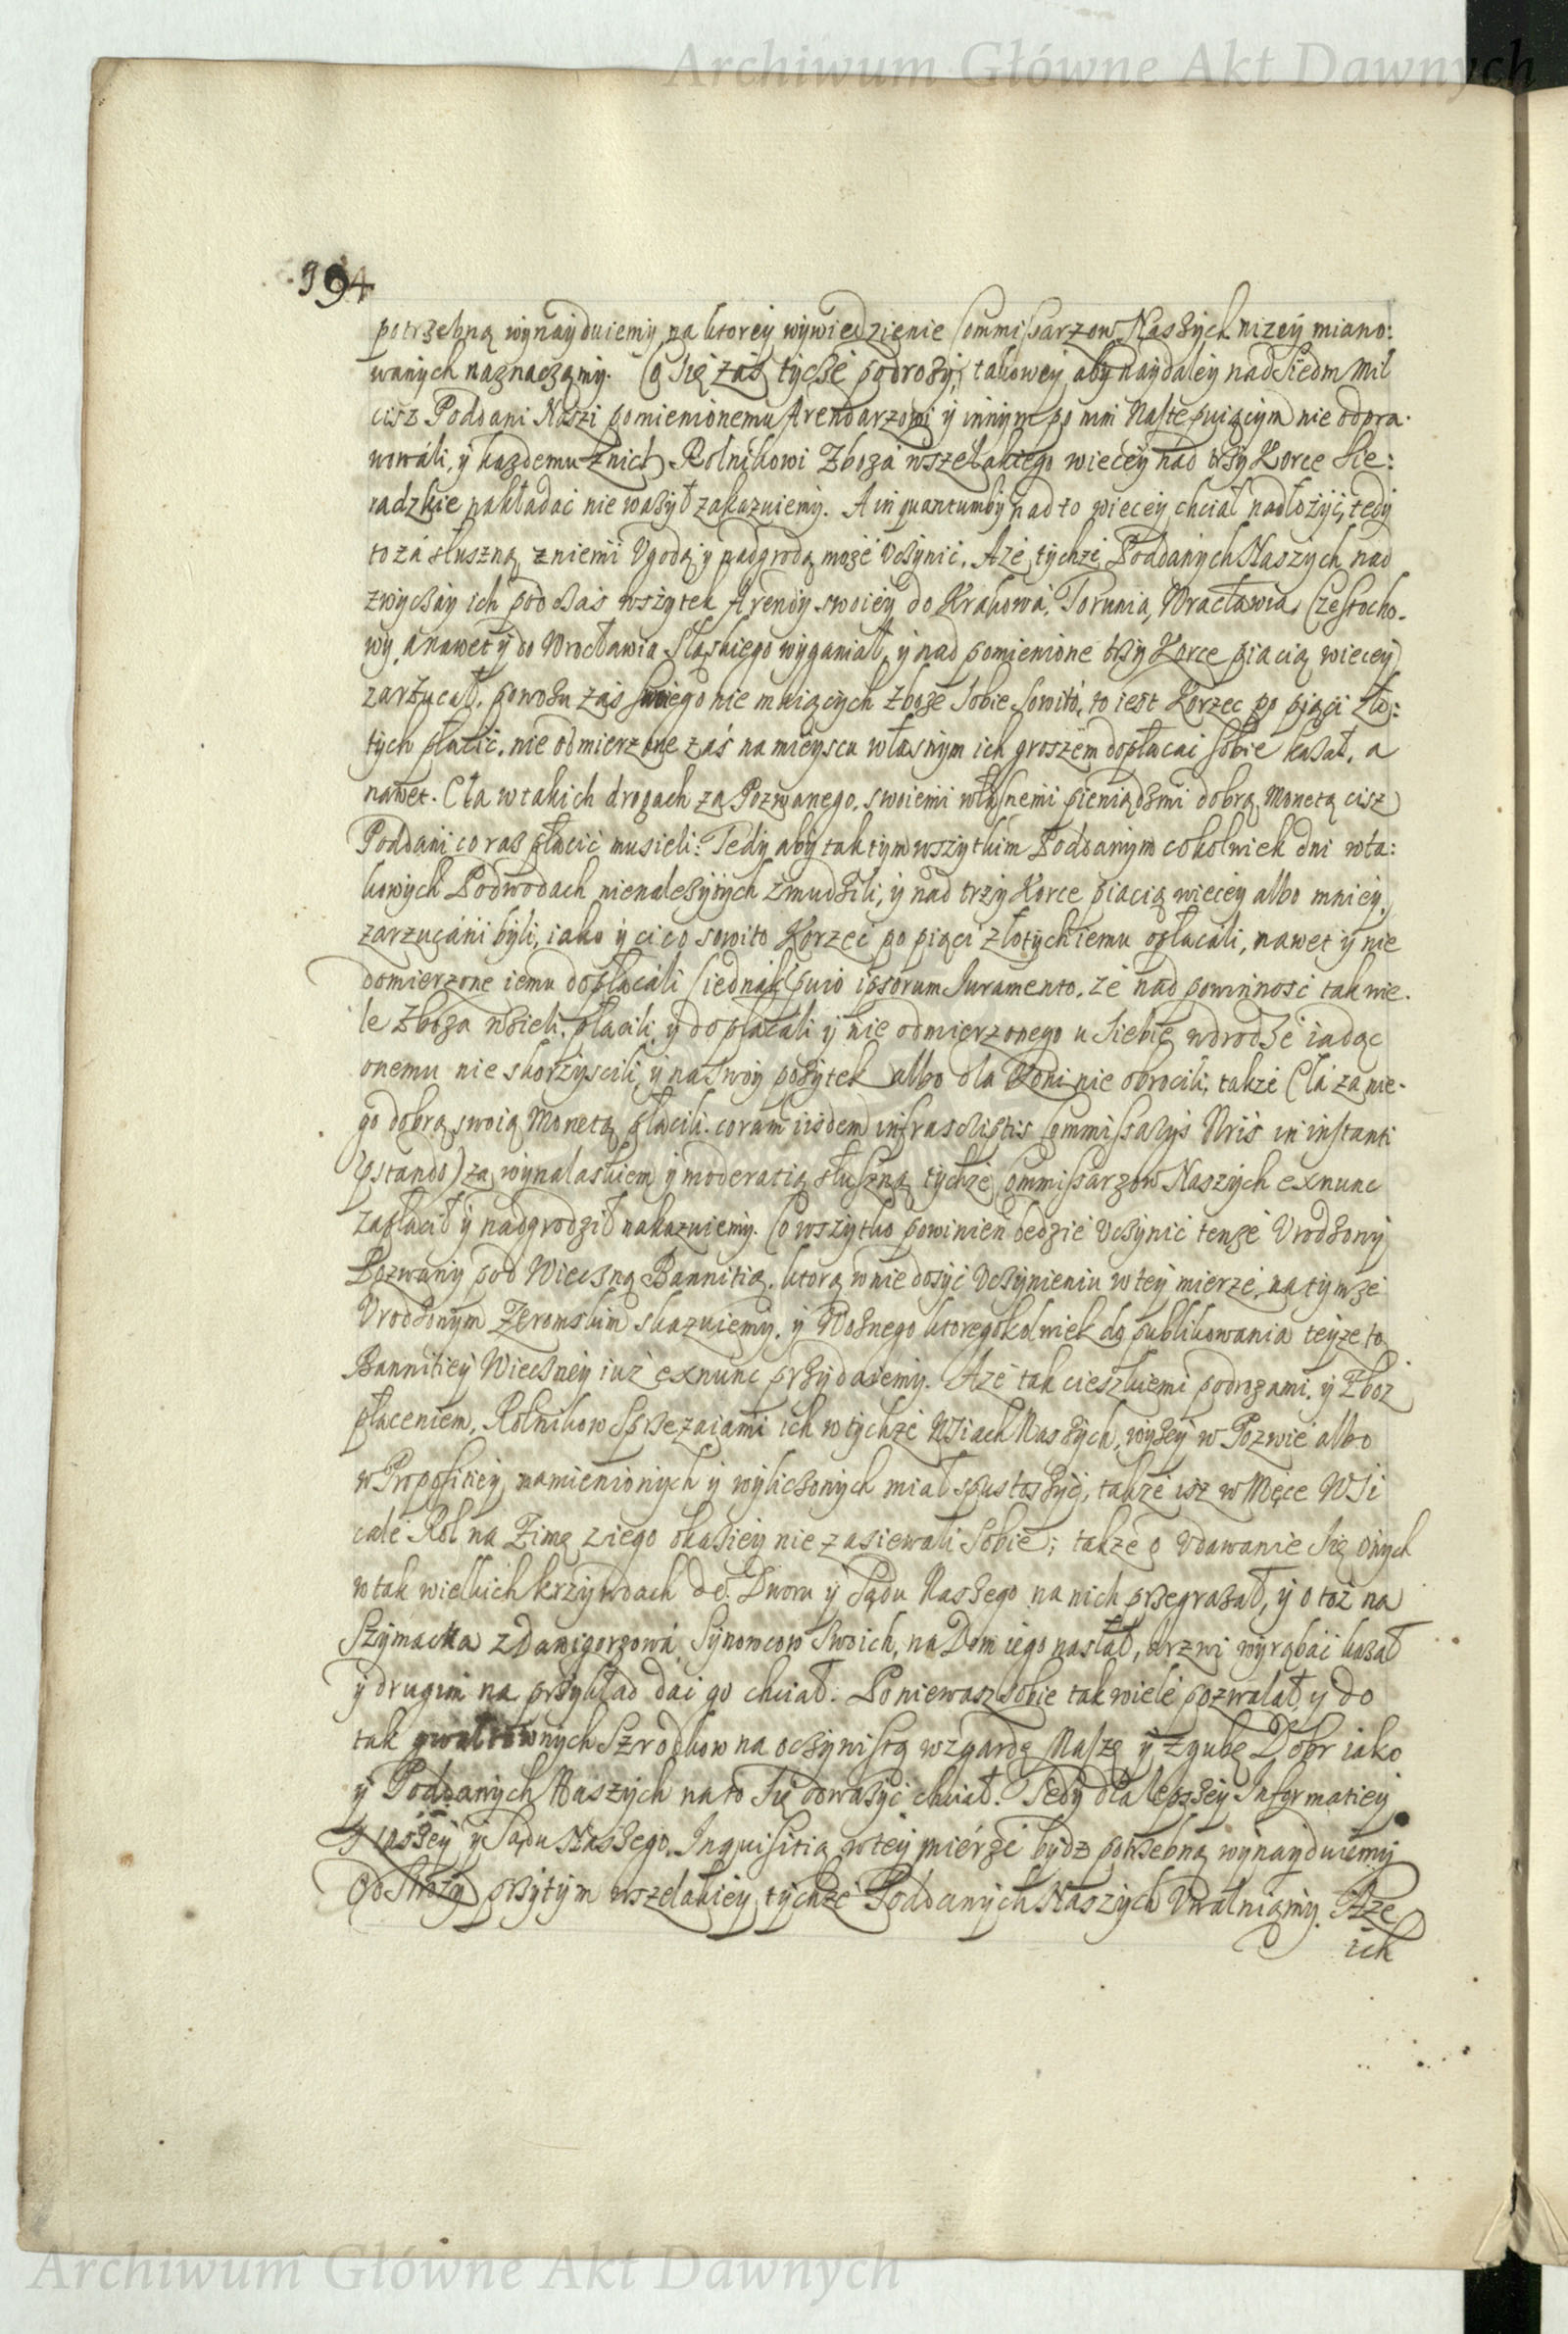 Archiwum Główne Akt Dawnych
394
potrzebną wynayduiemy na ktorey wywiedzienie Commissarzow Naszych nizey miano:
wanych naznaczamy. Co się zas tycze podrozy, takowey aby naydaley nad Siedm Mil
cisz Poddani Naszi pomienionemu Arendarzowi y innym po nim Nastepuiącym nie odpra-
wowali, y kazdemu z nich Rolnikowi Zboza wszelakiego wiecey nad trzy Korce Sie:
radzkie nakładac nie wazył zakazuiemy. A in quantumby nad to wiecey chciał nadłozyc, tedy
to za słuszną z niemi Ugodą y nadgrodą moze uczynic. Aze tychze Poddanych Naszych nad
zwyczay ich pod czas wszytek Arendy swoiey do Krakowa, Torunia, Wracławia, Czestocho-
wy, a nawet y do Wrocławia Sląskiego wyganiał, y nad pomienione trzy Korce piącią wiecey
zarzucał, powozu zas swego nie maiących zboze sobie sowito, to iest Korzec po piąci zło:
tych płacic, nie odmierzone zas na mieyscu własnym ich groszem dopłacac sobie kazał, a
nawet Cła w takich drogach za Pozwanego, swoiemi własnemi pieniądzmi dobrą Monetą cisz
Poddani co raz płacic musieli: Tedy aby tak tym wszytkim Poddanym cokolwiek dni w ta:
kowych Podwodach nienalezytych zmudzili, y nad trzy Korce piącią wiecey albo mniey
zarzucani byli, iako y ci co sowito Korzec po piąci złotych iemu opłacali, nawet y nie
domierzone iemu dopłacali (iednak pvio ipsorum Iuramento, ze nad powinnosc tak wie-
le Zboza wzieli, płacili, y dopłacali y nie odmierzonego u siebie w drodze iadąc
onemu nie skorzyscili, y na swoy pozytek albo dla Koni nie obrocili, takze Cła za nie-
go dobrą swoią Monetą płacili coram iisdem infrascriptis Commissarys Nris in instanti
pstando) za wynalaskiem y moderatią słuszną tychze Commissarzow Naszych exnunc
zapłacił y nadgrodził nakazuiemy. Co wszytko powinien bedzie uczynic tenze Urodzony
Pozwany pod Wieczną Bannitią, ktorą w nie dosyc uczynieniu w tey mierze, na tymze
Urodzonym Zeromskim skazuiemy, y Woznego ktoregokolwiek do publikowania teyze to
Bannitiey Wieczney iuz exnunc przydaiemy. Aze tak cieszkiemi podrozami, y Zboz
płaceniem, Rolnikow Sprzezaiami ich w tychze Wsiach Naszych, wyzey w Pozwie albo
w Propositiey namienionych y wyliczonych miał spustoszyc, takze isz w Męce Wsi
całe Rol na Zimę z iego okasiey nie zasiewali sobie; takze o Udawanie się onych
w tak wielkich krzywdach do Dworu y Sądu Naszego na nich przegrazał, y o toz na
Szymacka z Danigorzowa Synowcow swoich, na Dom iego nasłał, drzwi wyrąbac kazał
y drugim na przykład dac go chciał. Poniewasz sobie tak wiele pozwalał y do
tak gwałtownych Szrodkow na oczywistą wzgardę Naszę y Zgubę Dobr iako
y Poddanych Naszych na to się odwazyc chciał. Tedy dla lepszey Informatiey
Naszey y Sądu Naszego, Inquisitią w tey mierze bydz potrzebną wynayduiemy
Od Strozy przytym wszelakiey tychze Poddanych Naszych Uwalniamy. Aze
ich
Archiwum Główne Akt Dawnych